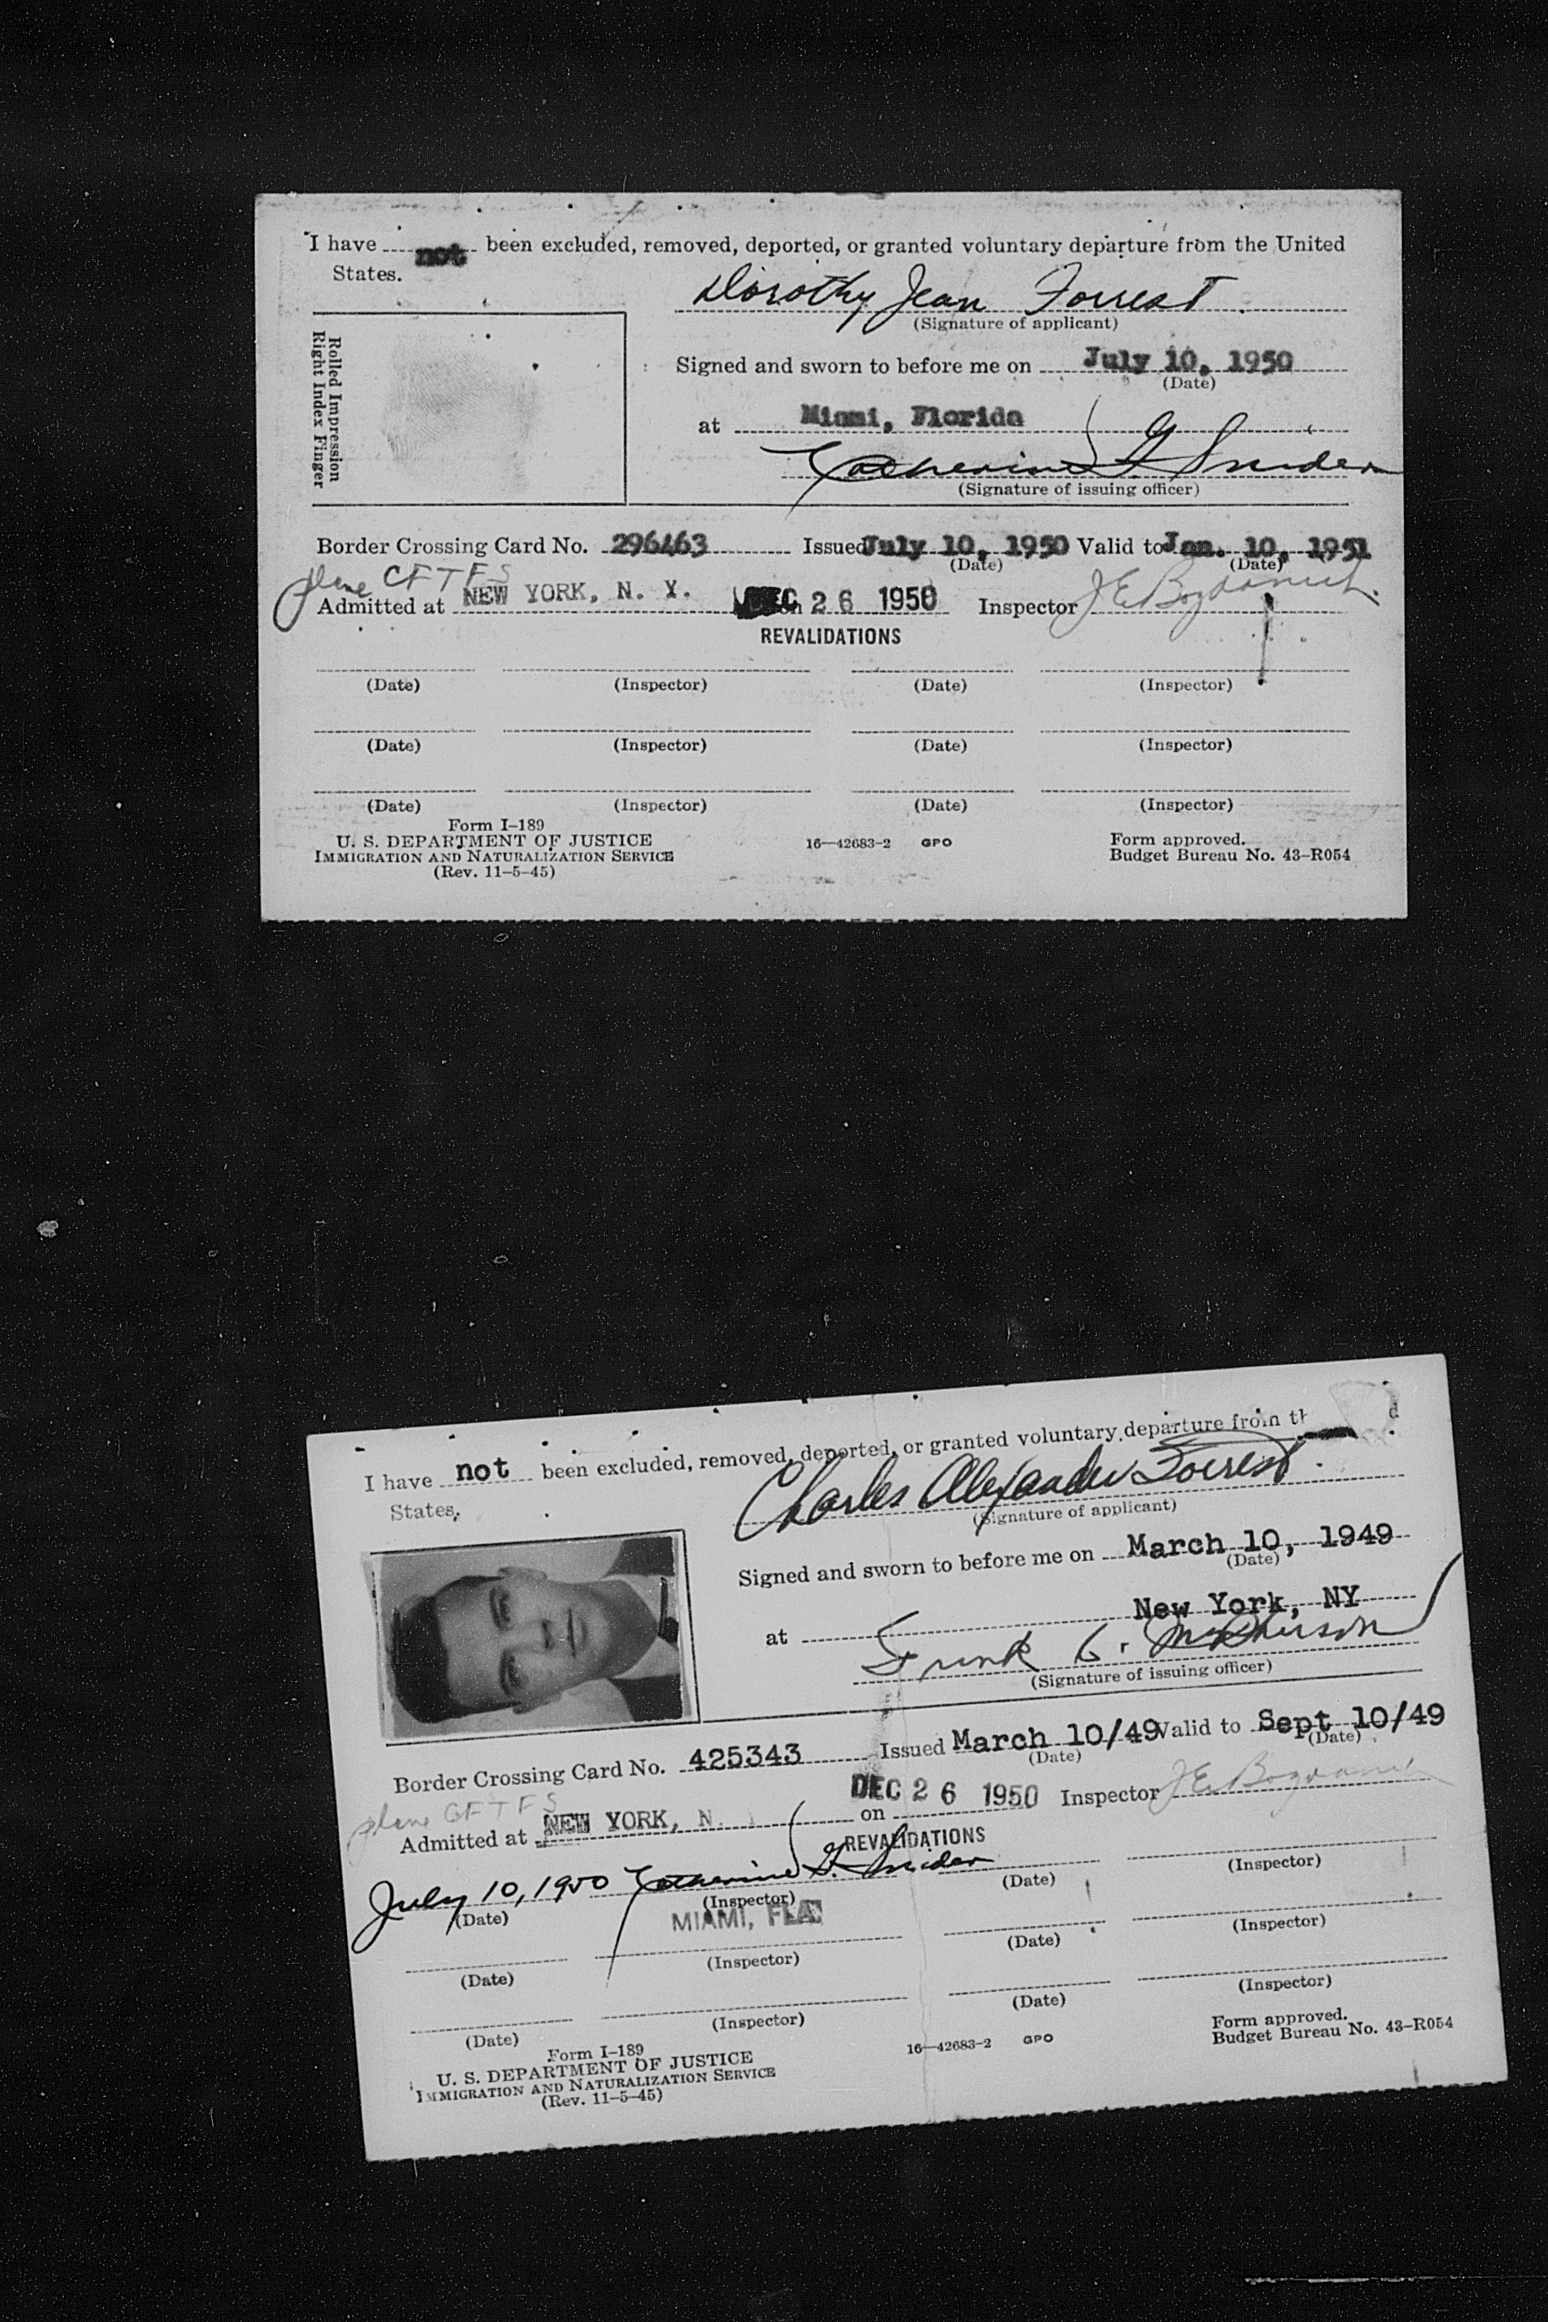 I have not been excluded, removed, deported, or granted voluntary departure from the United
States.
Dorothy Jean Forrest
(Signature of applicant)
Rolled Impression
Right Index Finger
Signed and sworn to before me on July 10, 1950
(Date)
at Miami, Florida
Catherine G. Snider
(Signature of issuing officer)
Border Crossing Card No. 296463 Issued July 10, 1950 Valid to Jan. 10, 1951
(Date) (Date)
plane CFTFS
Admitted at NEW YORK, N. Y. DEC 26 1950 Inspector J E Bogdanich
REVALIDATIONS
(Date) (Inspector) (Date) (Inspector)
(Date) (Inspector) (Date) (Inspector)
(Date) (Inspector) (Date) (Inspector)
Form I-189
U. S. DEPARTMENT OF JUSTICE 16—42683-2 GPO Form approved.
IMMIGRATION AND NATURALIZATION SERVICE Budget Bureau No. 43-R054
(Rev. 11-5-45)
I have not been excluded, removed, deported, or granted voluntary departure from th d
States.
Charles Alexander Forrest
(Signature of applicant)
Signed and sworn to before me on March 10, 1949
(Date)
at New York, NY
Frank G. McPherson
(Signature of issuing officer)
Border Crossing Card No. 425343 Issued March 10/49 Valid to Sept 10/49
(Date) (Date)
plane CFTFS
Admitted at NEW YORK, N. on DEC 26 1950 Inspector J E Bogdanich
REVALIDATIONS
July 10, 1950 Catherine G. Snider
(Date) (Inspector) (Date) (Inspector)
MIAMI, FLA.
(Date) (Inspector) (Date) (Inspector)
(Date) (Inspector) (Date) (Inspector)
Form I-189
U. S. DEPARTMENT OF JUSTICE 16—42683-2 GPO Form approved.
IMMIGRATION AND NATURALIZATION SERVICE Budget Bureau No. 43-R054
(Rev. 11-5-45)